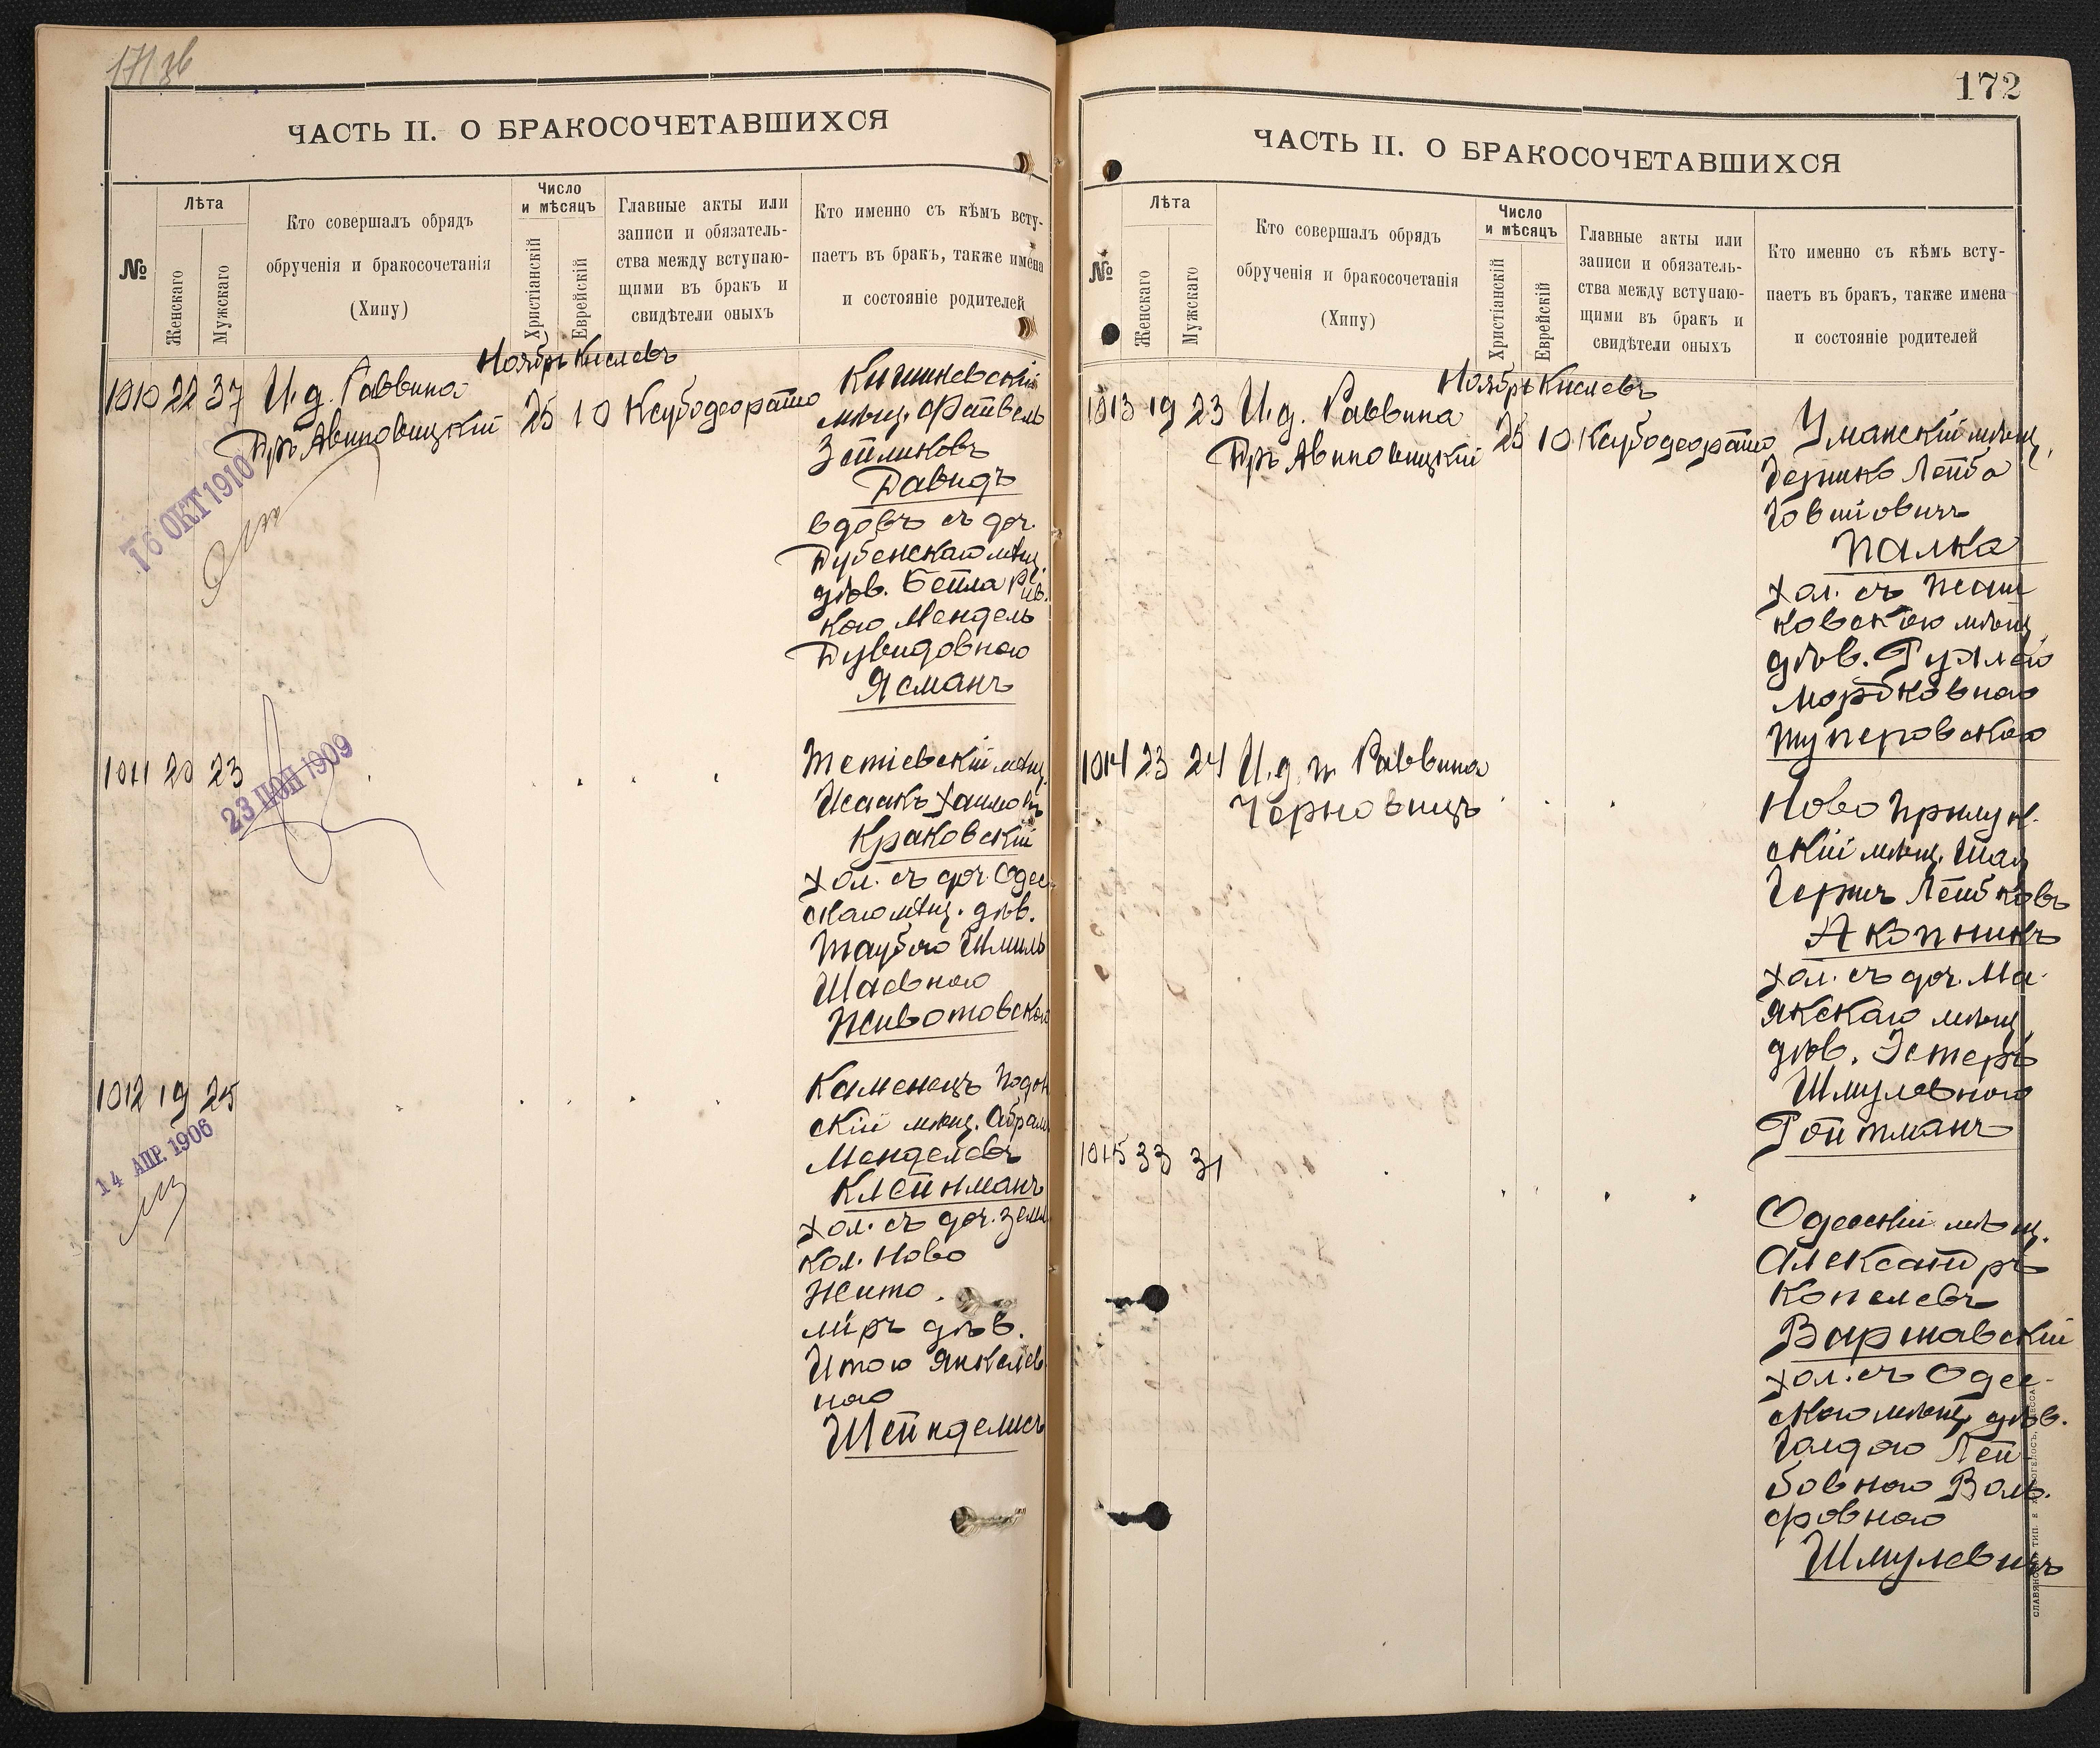 171 зв
ЧАСТЬ II. О БРАКОСОЧЕТАВШИХСЯ
№
Лѣта
Женскаго
Мужскаго
Кто совершалъ обрядъ
обрученія и бракосочетанія
(Хипу)
Число
и мѣсяцъ
Христіанскій
Еврейскій
Главные акты или
записи и обязатель-
ства между вступаю-
щими въ бракъ и
свидѣтели оныхъ
Кто именно съ кѣмъ всту-
паетъ въ бракъ, также имена
и состояніе родителей
Ноябрь Кислевъ
1010 22 37 И. д. Раввина
Дръ Авиновицкій 25 10 Ксубодеорато
Кишиневскій
мѣщ. Файвель
Зейликовъ
Давидъ
вдовъ съ доч.
Дубенскаго мѣщ.
дѣв. Бейла Рив.
кою Мендель
Дувидовною
Ясманъ
16 ОКТ 1910
1011 20 23
23 ІЮН 1909
Тетіевскій мѣщ.
Исаакъ Хаимовъ
Краковскій
хол. съ доч. Одес
скаго мѣщ. дѣв.
Таубою Шмиль
Шаевною
Животовской
1012 19 25
14 АПР. 1906
Каменецъ Подол
скій мѣщ. Абрам
Менделевъ
Клейнманъ
хол. съ доч. земл
кол. Ново
Жито.
міръ дѣв.
Итою Янкелев
ною
Шейнделисъ
172
ЧАСТЬ II. О БРАКОСОЧЕТАВШИХСЯ
№
Лѣта
Женскаго
Мужскаго
Кто совершалъ обрядъ
обрученія и бракосочетанія
(Хипу)
Число
и мѣсяцъ
Христіанскій
Еврейскій
Главные акты или
записи и обязатель-
ства между вступаю-
щими въ бракъ и
свидѣтели оныхъ
Кто именно съ кѣмъ всту-
паетъ въ бракъ, также имена
и состояніе родителей
Ноябрь Кислевъ
1013 19 23 И. д. Раввина
Дръ Авиновицкій 25 10 Ксубодеорато
Уманскій мѣщ.
Гершко Лейба
Іовшіовичъ
Палка
хол. съ
ковскою мѣщ.
дѣв. Рухлею
Мордковною
Шуперовскою
1014 23 24 И. д. п. Раввина
Черновицъ
Ново Прилук.
скій мѣщ. Шая
Гершъ Лейбковъ
Акопникъ
хол. съ доч. Ма-
якскаго мѣщ.
дѣв. Эстеръ
Шмулевною
Ройтманъ
1015 33 31
Одесскій мѣщ.
Александръ
Копелевъ
Варшавскій
хол. съ Одес-
скою мѣщ. дѣв.
Голдою Лей-
бовною Воль.
фовною
Шмулевичъ